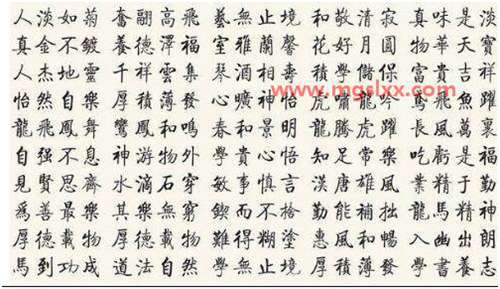 人淡如菊奮翮高飛藝無止境和敬清寂真味是淡
真金不鍍養德澤福室雅蘭馨花好月圓物華天寶
人杰地靈千祥雲集琴酒相壽積學儲保富貴吉祥
怡然自樂厚積薄發心曠神怡虎嘯龍吟鳶飛魚躍
龍飛鳳舞鸞鳳和鳴春和景明龍騰虎躍長風萬裏
自强不息神游物外學貴心悟知足常樂吃虧是福
見賢思齊水滴石穿敏事慎言漢唐雄風業精于勤
爲善最樂其樂無窮鍥而不捨勤能補拙龍馬精神
厚德載物厚德載物難得糊塗惠風和暢入幽出朗
馬到功成道法自然學無止境厚積薄發學書養志
www.mgslxx.com